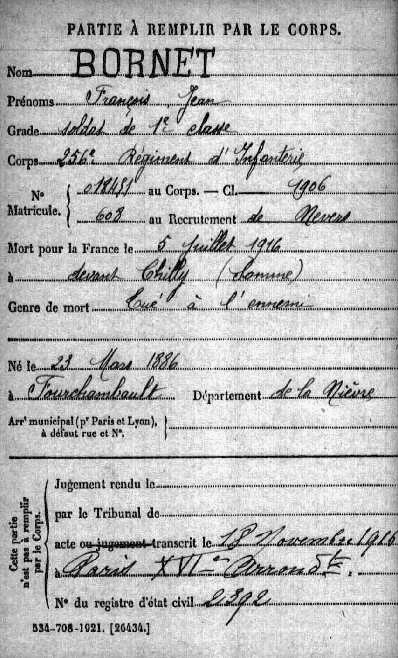 PARTIE À REMPLIR PAR LE CORPS.
Nom BORNET
Prénoms François, Jean
Grade soldat de 1e classe
Corps 256e Régiment d'Infanterie
Nº Matricule. 018451 au Corps. — Cl. 1906
608 au Recrutement de Nevers
Mort pour la France le 5 Juillet 1916
à devant Chilly (Somme)
Genre de mort Tué à l'ennemi
Né le 23 Mars 1886
à Fourchambault Département de la Nièvre
Arrt municipal (pr Paris et Lyon), à défaut rue et Nº.
Cette partie n'est pas à remplir par le Corps.
Jugement rendu le
par le Tribunal de
acte ou jugement transcrit le 18 Novembre 1916
à Paris XVIe Arrondt.
Nº du registre d'état civil 2392
534-708-1921. [26434.]